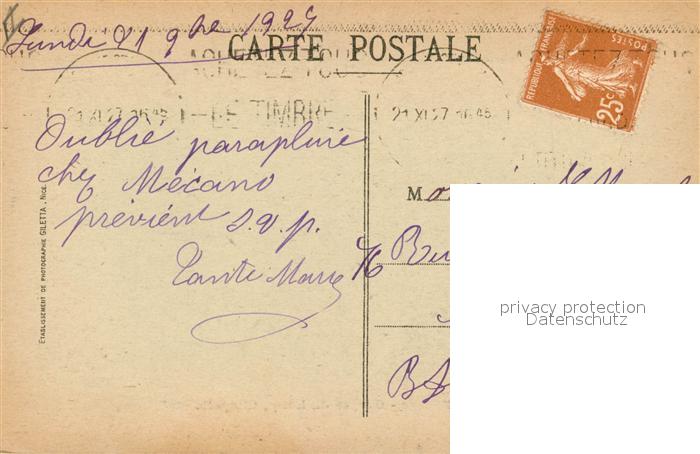 Lundi 21 9bre 1927
CARTE POSTALE
ACHETEZ
LE TIMBRE
21 XI 27 16 45
21 XI 27 16 45
RÉPUBLIQUE FRANÇAISE
POSTES
25c
Oublié parapluie
chez Mécano
prévient s.v.p.
Tante Marie
M
76
B
ETABLISSEMENT DE PHOTOGRAPHIE GILETTA, NICE
privacy protection
Datenschutz